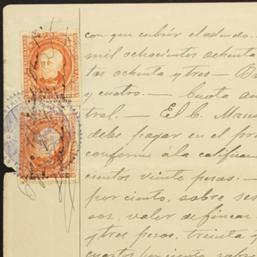 con que cubrir el adeudo
mil ochocientos ochenta
tos ochenta y tres — 
y cuatro. — Cuota an
tral. — El C. Manu
debe pagar en el pro
conforme á la califica
cientos veinte pesos. —
por ciento, sobre ses
sos, valor de fincas
y tres pesos, treinta y
cuartos por ciento sobre